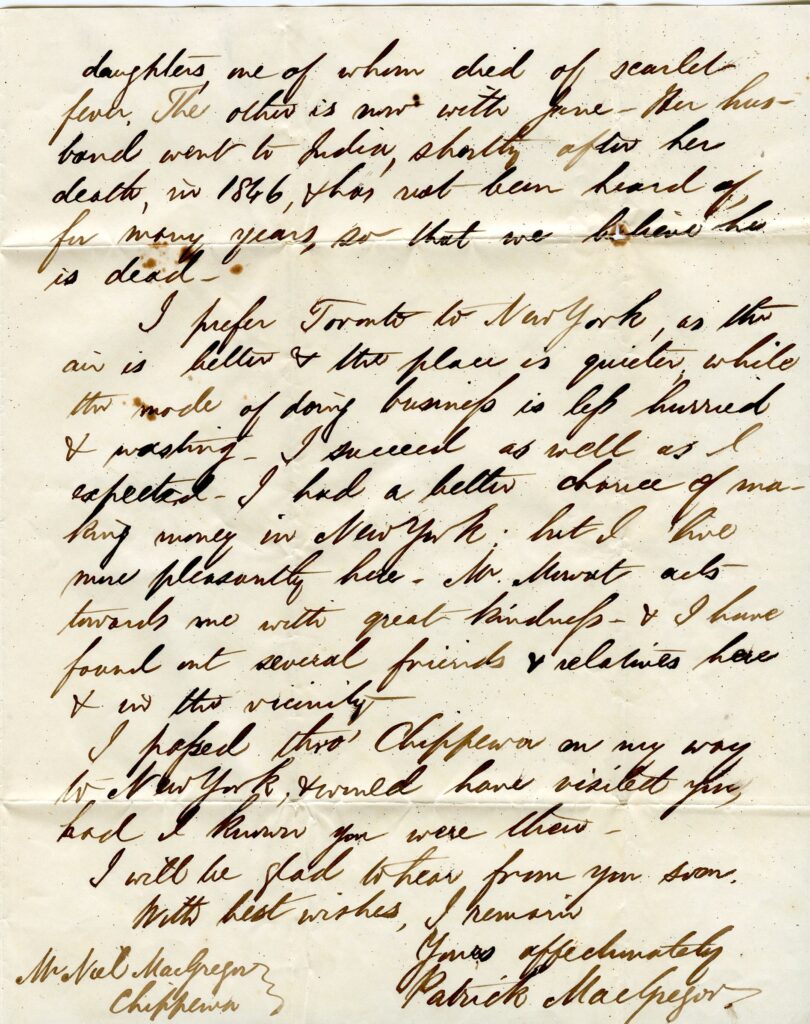 daughters, one of whom died of scarlet
fever. The other is now with Jane - Her hus-
band went to India, shortly after her
death, in 1846, & has not been heard of,
for many years, so that we believe he
is dead -
I prefer Toronto to New York, as the
air is better & the place is quieter, while
the mode of doing business is less hurried
& wasting - I succeed as well as I
expected - I had a better chance of ma-
king money in New York; but I live
more pleasantly here - Mr. Mowat acts
towards me with great kindness - & I have
found out several friends & relatives here
& in the vicinity
I passed thro' Chippewa on my way
to New York, & would have visited you,
had I known you were there -
I will be glad to hear from you soon.
With best wishes, I remain
Yours affectionately
Patrick MacGregor
Mr Neil MacGregor
Chippewa